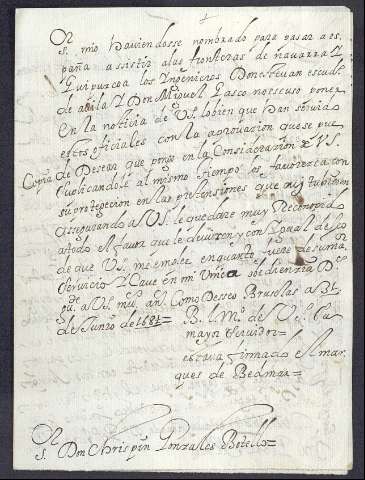 S. mio haviendosse nombrado para pasar a es
paña a assistir a las fronteras de navarra y
Guipuzcoa los Ingenieros Don esteuan escud
de auila y Don Miguel Pasco no escuso poner
En la noticia de V.s. lo bien que han servido
estos oficiales con la aprouacion que se pue
de Desear que pongo en la Consideracion de V.S.
Copia
suplicandole al mismo tiempo les favorezca con
su proteccion en las pretensiones que ay tubieren
asegurando a V.S. le quedare muy Reconocido
a todo el fauor que le devieren y con igual deseo
de que V.s. me emplee en quanto fuere de su ma.or
servicio y Cave en mi Unica obediencia D.s
gu.e a V.s. mu. an.s Como Deseo Bruselas a 31
de Junio de 1681= B. l. m.o de V.s. su
mayor servidor=
estava firmado el mar
ques de Bedmar=
S.
Don Chrispin Gonzales Botello=